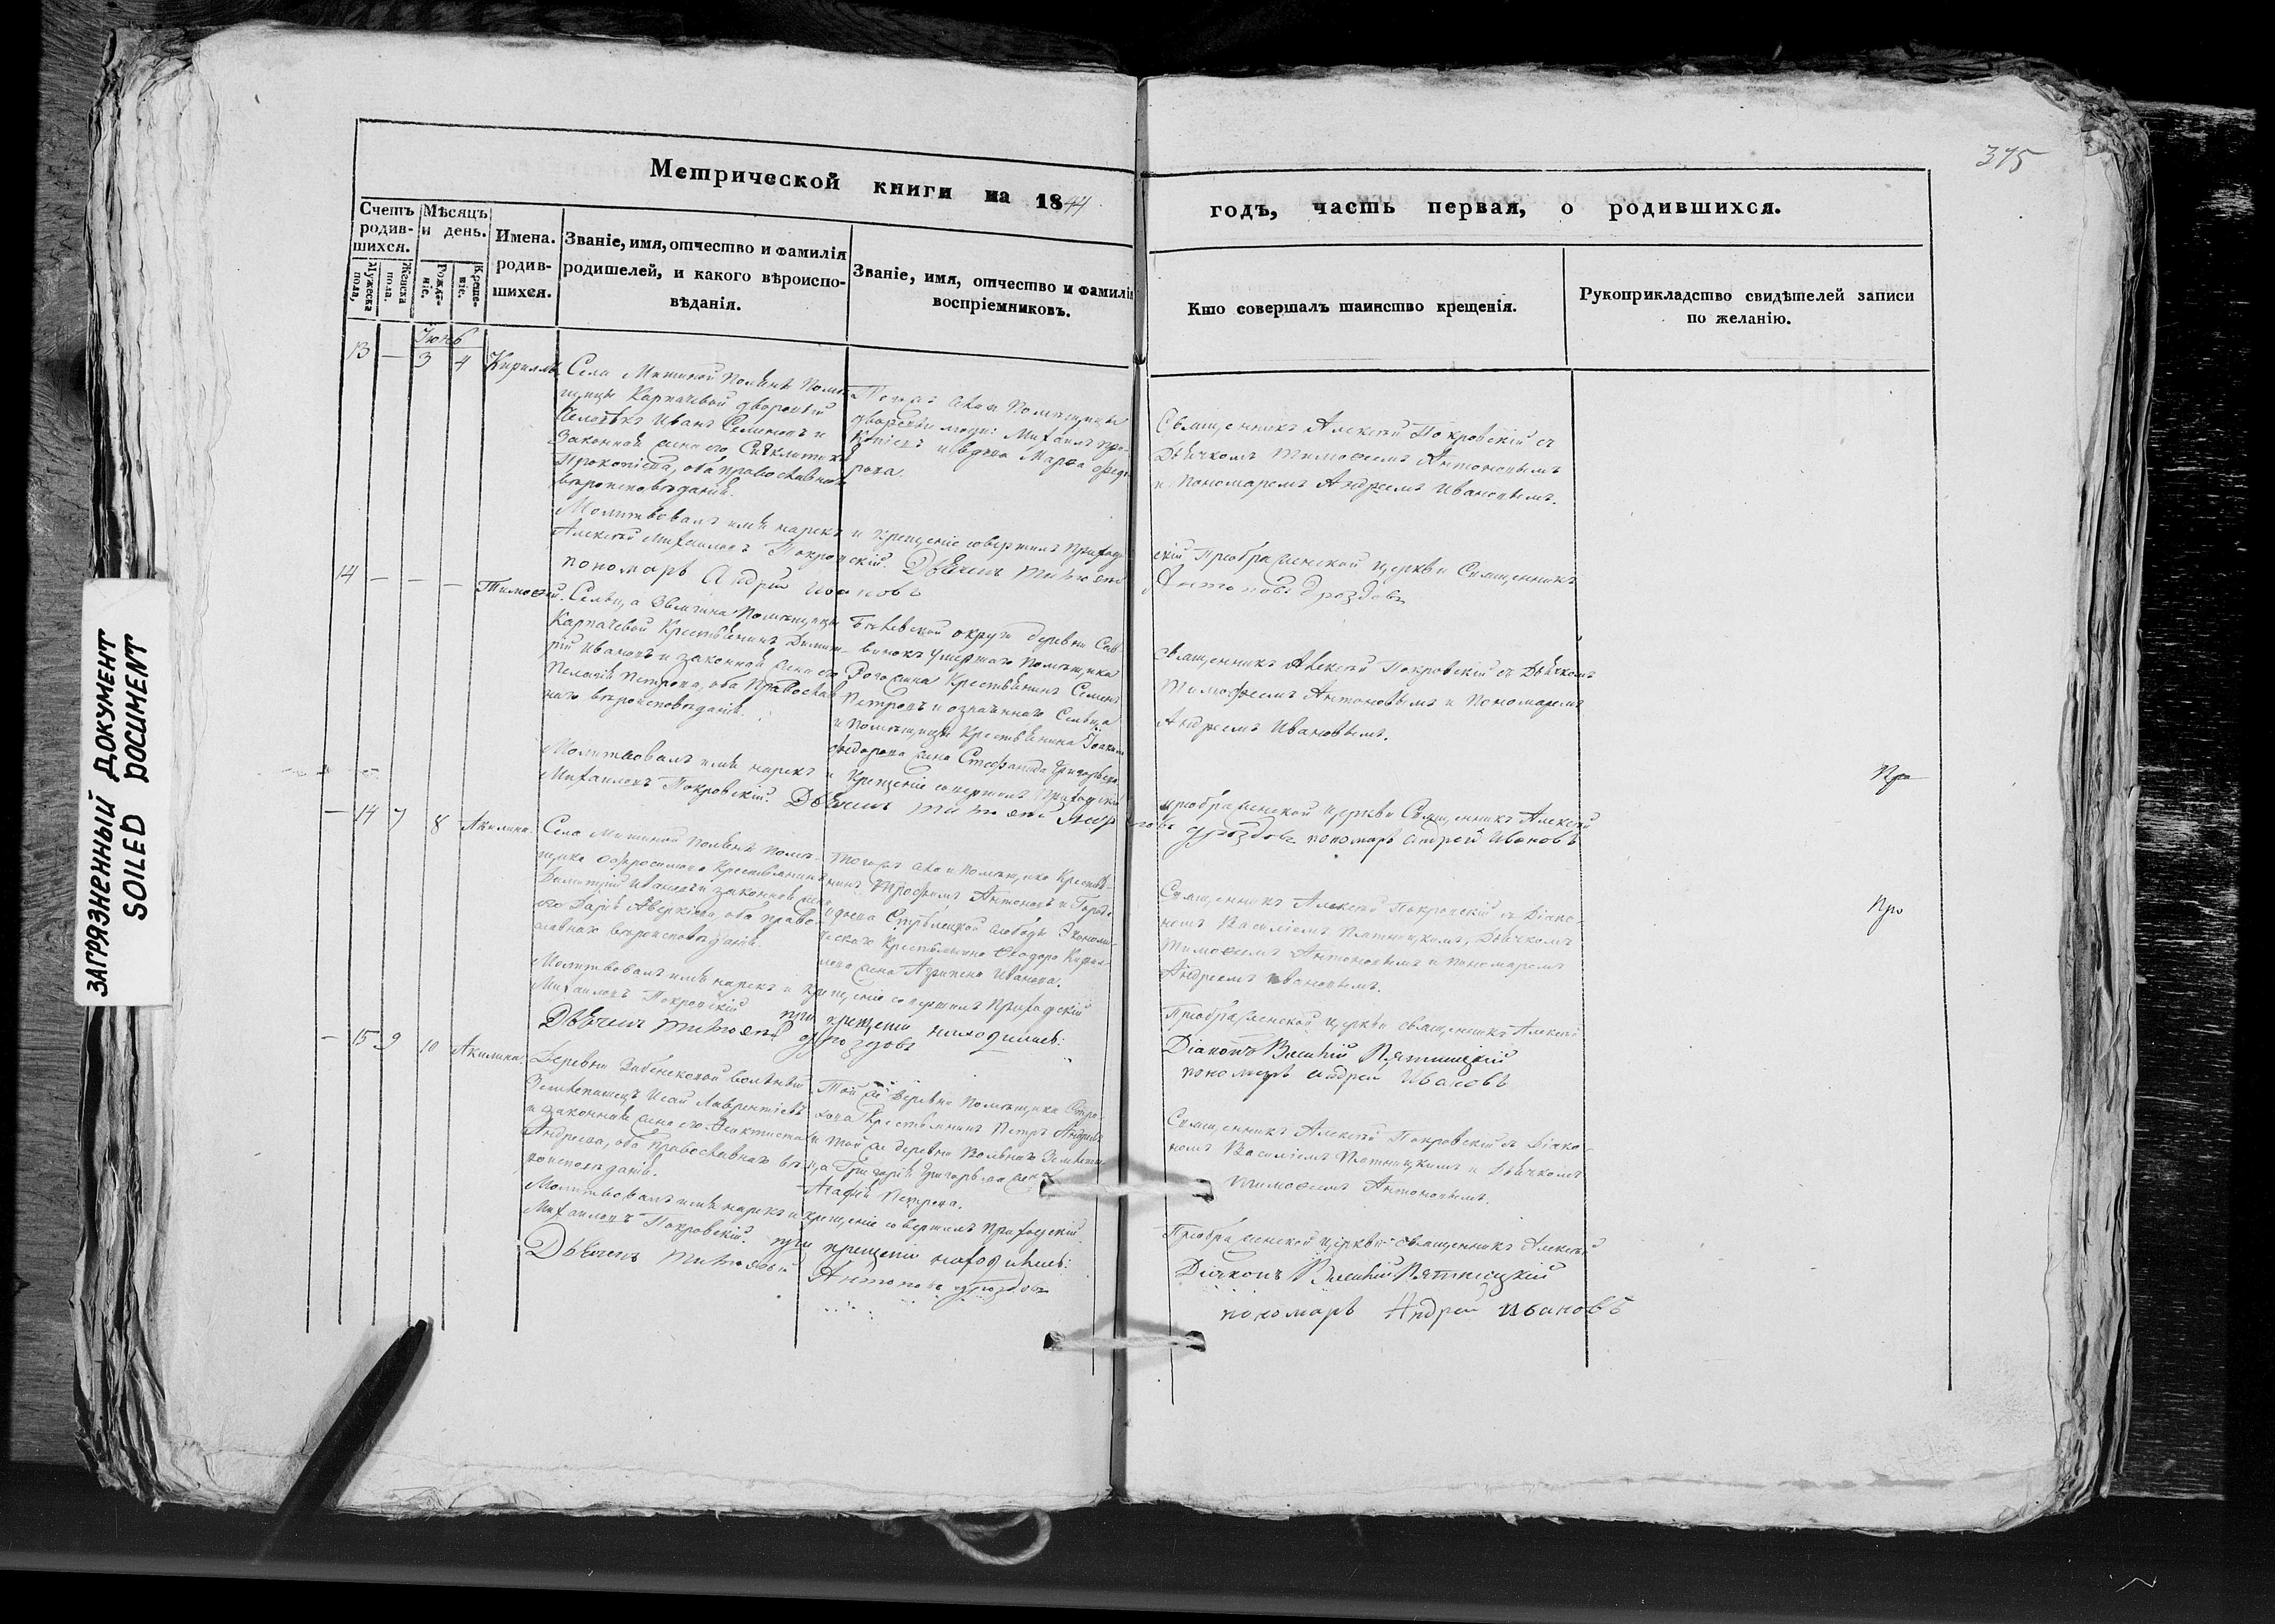 ЗАГРЯЗНЕННЫЙ ДОКУМЕНТ
SOILED DOCUMENT
375
Метрической книги на 1844
годъ, часть первая, о родившихся.
Счетъ родив-шихся.
Мѣсяцъ и день.
Имена. родив-шихся.
Званіе, имя, отчество и фамилія
родителей, и какого вѣроиспо-
вѣданія.
Званіе, имя, отчество и фамилія
воспріемниковъ.
Кто совершалъ таинство крещенія.
Рукоприкладство свидѣтелей записи
по желанію.
Мужеска пола,
Женска пола.
Рожде-ніе.
Креще-ніе.
Іюнь
13 — 3 4 Кириллъ
Села Митиной Поляны Помѣ-
щицы Карпачевой дворовый
Человѣкъ Иванъ Семеновъ и
Законная жена его
Прокопіева, оба православнаго
вѣроисповѣданія.
дворовые люди: Михаилъ Про-
копіевъ и вдова Марѳа Федо-
рова.
Священникъ Алексѣй Покровскій съ
Дьячкомъ Тимоѳеемъ Антоновымъ
и Пономаремъ Андреемъ Ивановымъ.
Молитвовалъ имя нарекъ и крещеніе совершилъ Приход-
скій Преображенской церкви Священникъ
Алексѣй Михаиловъ Покровскій. Дьячекъ Тимоѳей
Антоновъ Дроздовъ
пономарь Андрей Ивановъ
14 — — — Тимоѳей.
Сельца Помѣщицы
Карпачевой Крестьянинъ Димит-
рій Ивановъ и законная жена его
Пелагія Петрова, оба Православ-
наго вѣроисповѣданія.
Бѣлевской округи деревни Сав-
винокъ умершаго Помѣщика
Крестьянинъ Семенъ
Петровъ и означеннаго Сельца
и Помѣщицы Крестьянина
Федорова жена Стефанида Григорьева.
Священникъ Алексѣй Покровскій съ Дьячкомъ
Тимофеемъ Антоновымъ и Пономаремъ
Андреемъ Ивановымъ.
Молитвовалъ имя нарекъ и крещеніе совершилъ Приходскій
Преображенской церкви Священникъ Алексѣй
Михаиловъ Покровскій. Дьячекъ Тимоѳей
Дроздовъ пономарь Андрей Ивановъ
— 14 7 8 Акилина.
Села Митиной Поляны Помѣ-
щика Крестьянинъ
Димитрій Ивановъ и законная жена
его Дарія Аверкіева, оба право-
славнаго вѣроисповѣданія.
Тогожъ села и Помѣщика Крестья-
нинъ Трофимъ Антоновъ и Горо-
да Стрѣлецкой слободы Экономи-
ческаго Крестьянина Ѳеодора Кирил-
лова жена Агрипена Иванова.
Священникъ Алексѣй Покровскій съ Діако-
номъ Василіемъ Пятницкимъ, Дьячкомъ
Тимоѳеемъ Антоновымъ и Пономаремъ
Андреемъ Ивановымъ.
Молитвовалъ имя нарекъ и крещеніе совершилъ Приходскій
Преображенской церкви священникъ Алексѣй
Михаиловъ Покровскій при крещеніи находились:
Дьячекъ Тимоѳей Дроздовъ
Діаконъ Василій Пятницкій
пономарь Андрей Ивановъ
— 15 9 10 Акилина.
Деревни вольный
Землепашецъ Исай Лаврентіевъ
и законная жена его Ѳеоктиста
Андреева, оба Православнаго вѣ-
роисповѣданія.
Той же Деревни Помѣщика
Крестьянинъ Петръ Андреевъ
и той же деревни Вольнаго Землепаш-
ца Григорія Григорьева жена
Агафія Петрова.
Священникъ Алексѣй Покровскій съ Діако-
номъ Василіемъ Пятницкимъ и Дьячкомъ
Тимоѳеемъ Антоновымъ.
Молитвовалъ имя нарекъ и крещеніе совершилъ Приходскій
Преображенской церкви священникъ Алексѣй
Михаиловъ Покровскій. при крещеніи находились:
Дьячекъ Тимоѳей Антоновъ Дроздовъ
Діаконъ Василій Пятницкій
пономарь Андрей Ивановъ